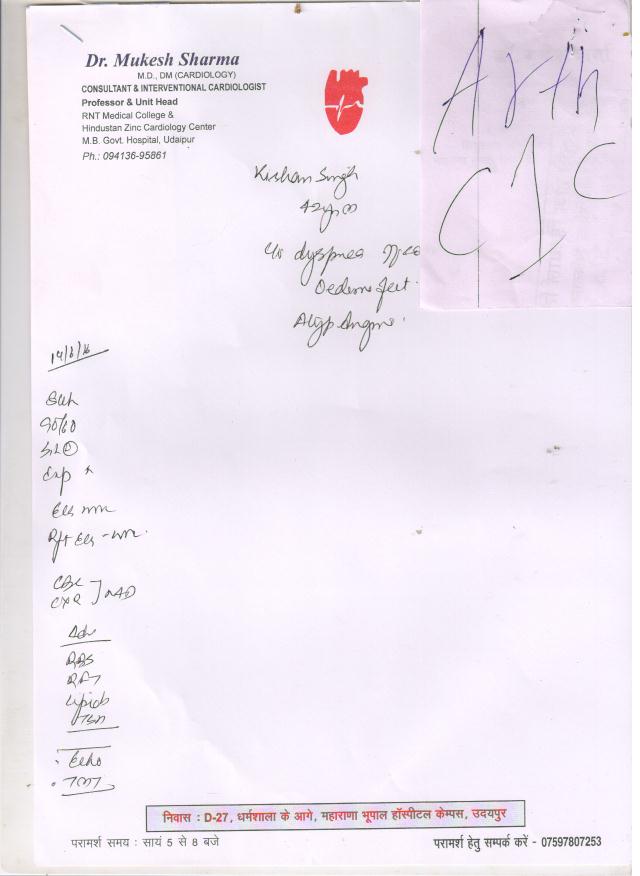 Dr. Mukesh Sharma
M.D., DM (CARDIOLOGY)
CONSULTANT & INTERVENTIONAL CARDIOLOGIST
Professor & Unit Head
RNT Medical College &
Hindustan Zinc Cardiology Center
M.B. Govt. Hospital, Udaipur
Ph.: 094136-95861
Arth
C 1 C
Kishan Singh
42y/m
c/o dyspnea
Oedema feet
Atyp Angina
14/8/16
90/60
CBC
CXR ] NAD
Adv
RBS
RFT
Lipids
TSH
. Echo
. TMT
निवास : D-27, धर्मशाला के आगे, महाराणा भूपाल हॉस्पीटल केम्पस, उदयपुर
परामर्श समय : सायं 5 से 8 बजे
परामर्श हेतु सम्पर्क करें - 07597807253